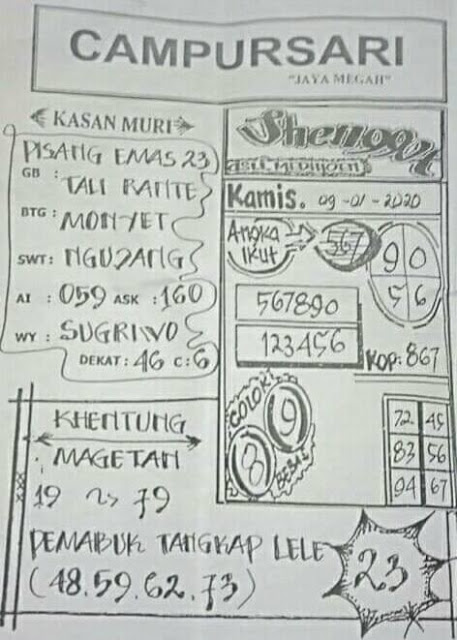 CAMPURSARI
"JAYA MEGAH"
KASAN MURI
PISANG EMAS 23
GB : TALI RANTE
BTG : MONYET
SWT : NGUJANG
AI : 059 ASK : 160
WY : SUGRIWO
DEKAT : 46 C : 6
Shenoov
ASLI
Kamis. 09-01-2020
Angka
Ikut
567
90
56
567890
123456
KOP: 867
COLOK
9
8
BEBAS
72 45
83 56
94 67
KHENTUNG
MAGETAN
19 79
PEMABUK TANGKAP LELE
(48.59.62.73)
23